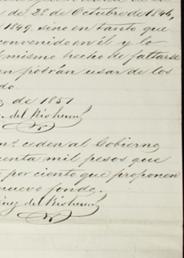 de 28 de Octubre de 1846,
1849, sino en tanto que
convenido en él y lo
mismo hecho de faltarse
podrán usar de los
do.
de 1851
ceden al Gobierno
enta mil pesos que
por ciento que proponen
nuevo fondo.